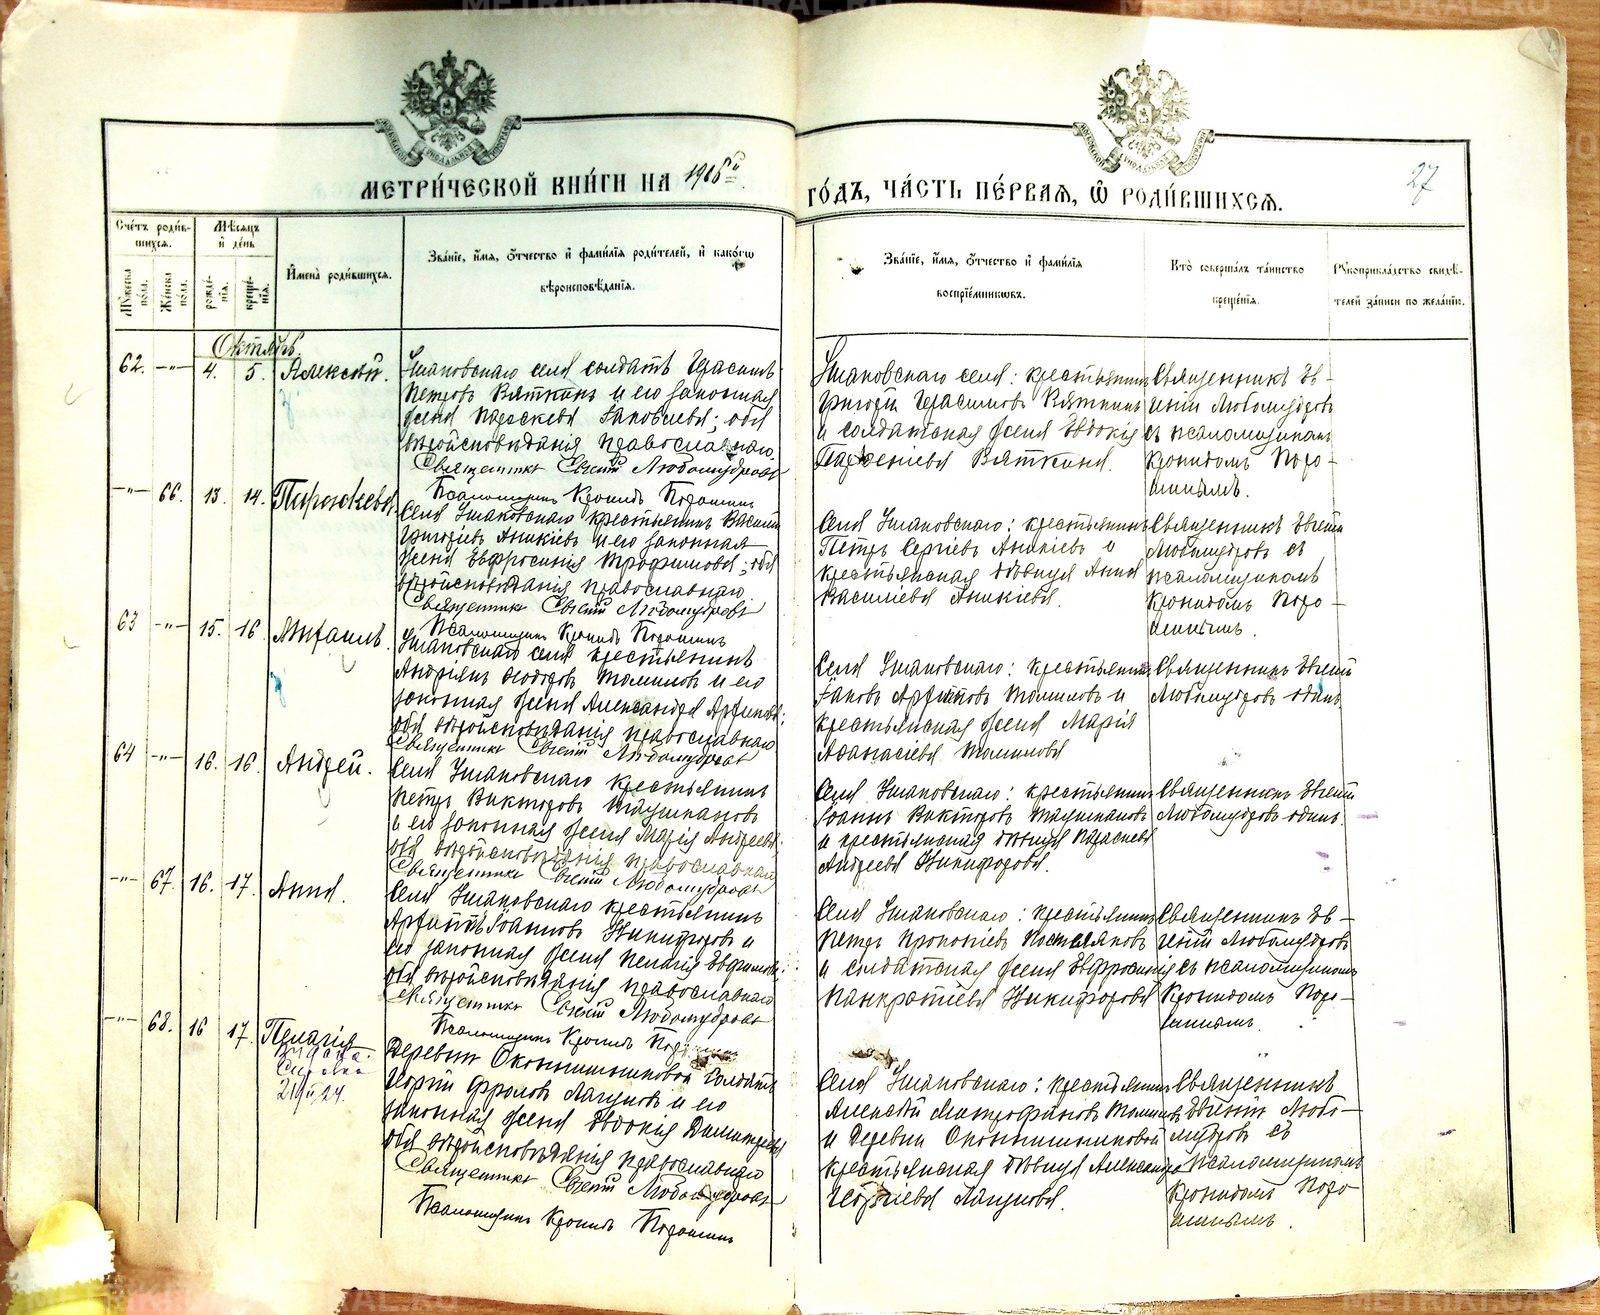 METRIKI.GASO-URAL.RU
27
МЕТРИ́ЧЕСКОЙ КНИ́ГИ НА
ГО́ДЪ, ЧА́СТЬ ПЕ́РВАЯ, Ѽ РОДИ́ВШИХСЯ.
Сче́тъ роди́в-
шихся.
Мѣ́сяцъ
и҆ де́нь
Мꙋжеска по́ла.
Же́нска по́ла.
рожде́-
нія.
креще́-
нія.
И҆мена̀ роди́вшихся.
Зва́ніе, и҆́мя, ѻ҆́тчество и҆ фами́лія роди́телей, и҆ како́гѡ
вѣроисповѣ́данія.
Зва́ніе, и҆́мя, ѻ҆́тчество и҆ фами́лія
воспріе́мникѡвъ.
Кто̀ соверша́лъ та́инство
креще́нія.
Рꙋкоприкла́дство свидѣ́-
телей за́писи по жела́нію.
Октябрь
62. —"— 4. 5. Алексѣй.
Ушаковскаго села солдатъ Герасимъ
Петровъ Вяткинъ и его законная
жена Параскева Іаковлева; оба
вѣроисповѣданія православнаго.
Священникъ Евгеній Любомудровъ
Псаломщикъ Кронидъ Порошинъ
Ушаковскаго села: крестьянинъ
Григорій Герасимовъ Вяткинъ
и солдатская жена Евдокія
Вяткина.
Священникъ Ев-
геній Любомудровъ
съ псаломщикомъ
Кронидомъ Поро-
шинымъ.
—"— 66. 13. 14.
Села Ушаковскаго крестьянинъ Василій
Григорьевъ Аникіевъ и его законная
жена Евфросинія Трофимова; оба
вѣроисповѣданія православнаго.
Священникъ Евгеній Любомудровъ
Псаломщикъ Кронидъ Порошинъ
Села Ушаковскаго: крестьянинъ
Петръ Сергіевъ Аникіевъ и
крестьянская дѣвица Анна
Василіева Аникіева.
Священникъ Евгеній
Любомудровъ съ
псаломщикомъ
Кронидомъ Поро-
шинымъ.
63 —"— 15. 16. Михаилъ.
Ушаковскаго села крестьянинъ
Андріанъ Томиловъ и его
законная жена Александра
оба вѣроисповѣданія православнаго
Священникъ Евгеній Любомудровъ
Села Ушаковскаго: крестьянинъ
Іаковъ Томиловъ и
крестьянская жена Марія
Аѳанасіева Томилова
Священникъ Евгеній
Любомудровъ одинъ
64 —"— 16. 16. Андрей.
Села Ушаковскаго крестьянинъ
Петръ Викторовъ
и его законная жена Марія Андреева;
оба вѣроисповѣданія православнаго
Священникъ Евгеній Любомудровъ
Села Ушаковскаго: крестьянинъ
Іоаннъ Викторовъ
и крестьянская дѣвица Параскева
Андреева Никифорова.
Священникъ Евгеній
Любомудровъ одинъ.
—"— 67. 16. 17. Анна.
Села Ушаковскаго крестьянинъ
Іоанновъ Никифоровъ и
его законная жена Пелагія Евфимова;
оба вѣроисповѣданія православнаго
Священникъ Евгеній Любомудровъ
Псаломщикъ Кронидъ Порошинъ
Села Ушаковскаго: крестьянинъ
Петръ Прокопіевъ Постоляковъ
и солдатская жена Евфросинія
Панкратіева Никифорова
Священникъ Ев-
геній Любомудровъ
съ псаломщикомъ
Кронидомъ Поро-
шинымъ.
—"— 68. 16 17. Пелагія
Выдана
Справка
Деревни солдатъ
Георгій Фроловъ Лагуновъ и его
законная жена Евдокія Димитріева
оба вѣроисповѣданія православнаго
Священникъ Евгеній Любомудровъ
Псаломщикъ Кронидъ Порошинъ
Села Ушаковскаго: крестьянинъ
Алексѣй Митрофановъ Томиловъ
и деревни
крестьянская дѣвица Александра
Георгіева Лагунова.
Священникъ
Евгеній Любо-
мудровъ съ
псаломщикомъ
Кронидомъ Поро-
шинымъ.